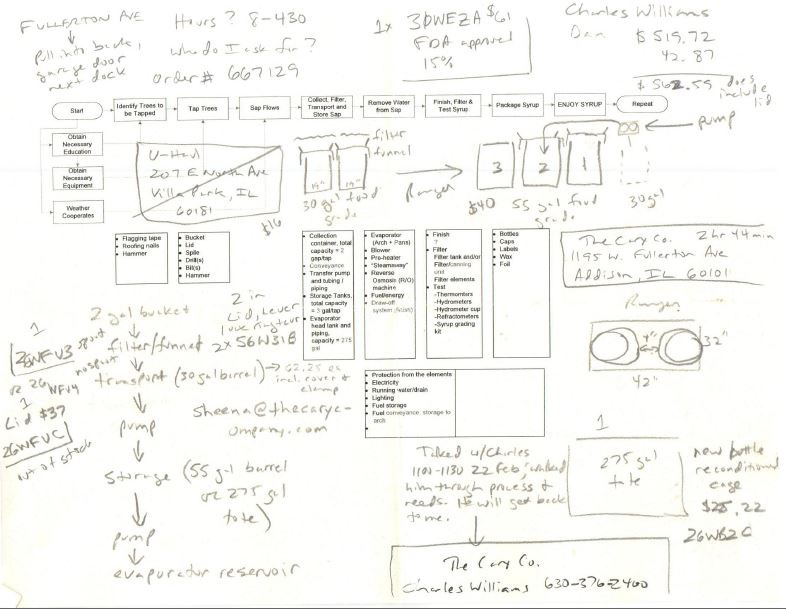 FULLERTON AVE
Pull into back,
garage door
next dock
Hours? 8-430
Who do I ask for?
order # 667129
1x 30WEZA $61
FDA approved
15%
Charles Williams
Dan $519.72
42.87
$562.59 does
include
lid
Start
Identify Trees to
be Tapped
Tap Trees
Sap Flows
Collect, Filter,
Transport and
Store Sap
Remove Water
from Sap
Finish, Filter &
Test Syrup
Package Syrup
ENJOY SYRUP
Repeat
Obtain
Necessary
Education
Obtain
Necessary
Equipment
Weather
Cooperates
U-Haul
207 E North Ave
Villa Park, IL
60181
$16
filter
funnel
19"
19"
30 gal food
grade
Ranger
3
2
1
pump
$40
55 gal food
grade
30 gal
Flagging tape
Roofing nails
Hammer
Bucket
Lid
Spile
Drill(s)
Bit(s)
Hammer
Collection
container, total
capacity = 2
gap/tap
Conveyance
Transfer pump
and tubing /
piping
Storage Tanks,
total capacity
= 3 gal/tap
Evaporator
head tank and
piping,
capacity = 275
gal
Evaporator
(Arch + Pans)
Blower
Pre-heater
"Steamaway"
Reverse
Osmosis (R/O)
machine
Fuel/energy
Draw-off
system
Finish
?
Filter
Filter tank and/or
Filter/canning
unit
Filter elements
Test
-Thermometers
-Hydrometers
-Hydrometer cup
-Refractometers
-Syrup grading
kit
Bottles
Caps
Labels
Wax
Foil
The Cary Co. 2 hr 44 min
1195 W. Fullerton Ave
Addison, IL 60101
Ranger
4"
32"
42"
2 gal bucket
2 in
Lid, Lever
lock ring
2x 56W31B
1
26WFV3 spout
or 26WFV4 no spout
1
Lid $37
26WFVC
out of stock
filter/funnel
transport (30 gal barrel) → 62.25 ea
incl. cover &
clamp
pump
sheena@thecaryc-
ompany.com
storage (55 gal barrel
or 275 gal
tote)
pump
evaporator reservoir
Protection from the elements
Electricity
Running water/drain
Lighting
Fuel storage
Fuel conveyance, storage to
arch
Talked w/Charles
1101-1130 22 Feb, walked
him through process &
needs. He will get back
to me.
The Cary Co.
Charles Williams 630-376-2400
1
275 gal
tote
new bottle
reconditioned
cage
26WB2C